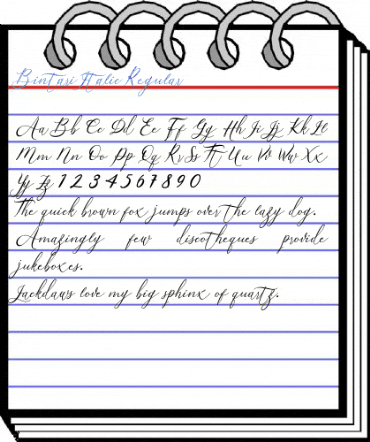 Bintari Italic Regular
Aa Bb Cc Dd Ee Ff Gg Hh Ii Jj Kk Ll
Mm Nn Oo Pp Qq Rr Ss Tt Uu Vv Ww Xx
Yy Zz 1 2 3 4 5 6 7 8 9 0
The quick brown fox jumps over the lazy dog.
Amazingly few discotheques provide
jukeboxes.
Jackdaws love my big sphinx of quartz.